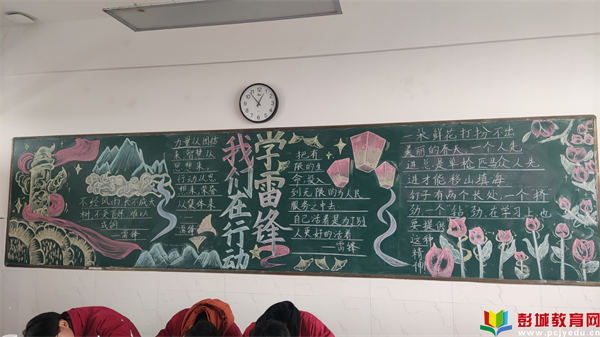 不经风雨,长不成大
树,不受百炼,难以
成钢
——雷锋
力量从团结
来,智慧从
劳动来,
行动从思
想来,荣誉
从集体来
——雷锋
学雷锋
我们在行动
把有
限的生
命投入
到无限的为人民
服务之中去
自己活着是为了别
人更好的活着
——雷锋
一朵鲜花打扮不出
美丽的春天,一个人先
进总是单枪匹马,众人先
进才能移山填海
钉子有两个长处,一个挤
劲一个钻劲,在学习上也
要提倡
这种
精
神
彭城教育网
www.pcjyedu.cn